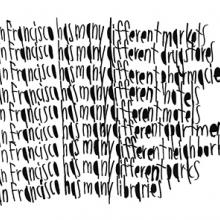 n Francisco has many different markets
n Francisco has many different drugstores
n Francisco has many different pharmacie
n Francisco has many different hotels
n Francisco has many different motels
n Francisco has many different apartment
n Francisco has many different neighborh
n Francisco has many different parks
n Francisco has many libraries